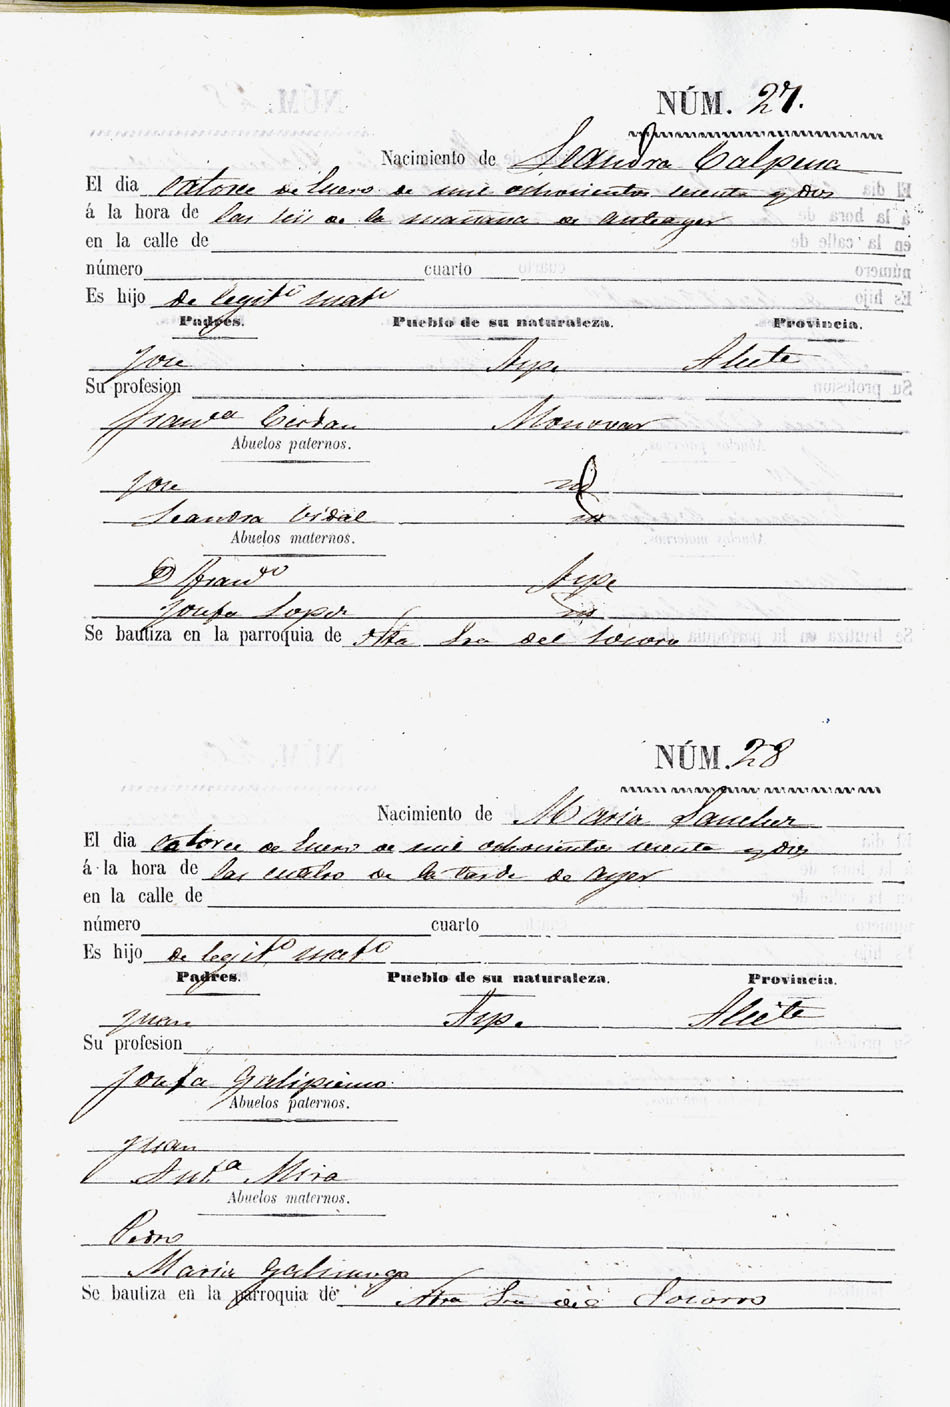 NÚM. 27.
Nacimiento de Leandra Calpena
El dia catorce de Enero de mil ochocientos sesenta y dos
á la hora de las seis de la mañana de anteayer
en la calle de
número cuarto
Es hijo de legit.º mat.º
Padres. Pueblo de su naturaleza. Provincia.
Jose Aspe Alic.te
Su profesion
Fran.ca Cerdan Monovar
Abuelos paternos.
Jose id
Leandra Vidal id
Abuelos maternos.
D Fran.co Aspe
Josefa Lopez id
Se bautiza en la parroquia de Ntra Sra del Socorro
NÚM. 28
Nacimiento de Maria Sanchez
El dia catorce de Enero de mil ochocientos sesenta y dos
á la hora de las cuatro de la tarde de ayer
en la calle de
número cuarto
Es hijo de legit.º mat.º
Padres. Pueblo de su naturaleza. Provincia.
Juan Aspe Alic.te
Su profesion
Josefa Galipienso
Abuelos paternos.
Juan
Ant.ª Mira
Abuelos maternos.
Pedro
Maria
Se bautiza en la parroquia de Ntra Sra del Socorro